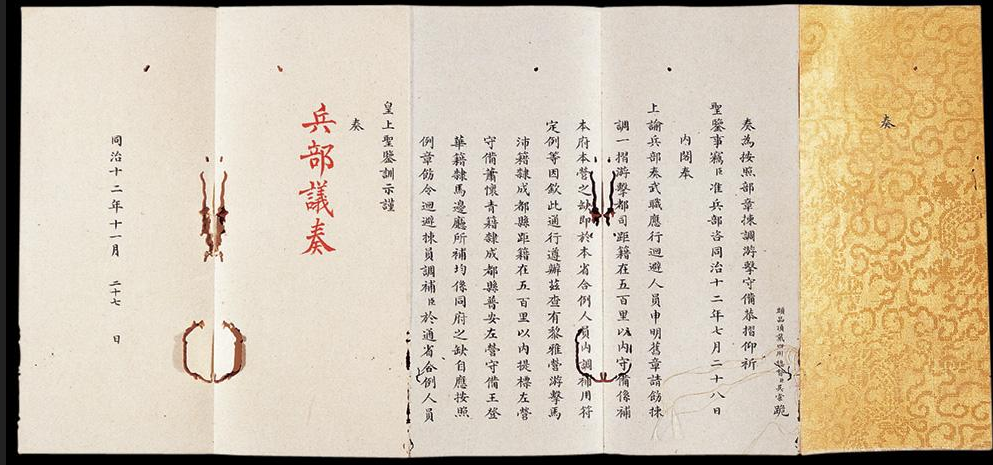 奏
頭品頂戴四川總督臣吳棠跪
奏為按照部章揀調游擊守備恭摺仰祈
聖鑒事竊臣准兵部咨同治十二年七月二十八日
內閣奉
上諭兵部奏武職應行迴避人員申明舊章請飭揀
調一摺游擊都司距籍在五百里以內守備係補
本府本營之缺即於本省合例人員內調補用符
定例等因欽此通行遵辦茲查有黎雅營游擊馬
沛籍隸成都縣距籍在五百里以內提標左營
守備蕭懷青籍隸成都縣普安左營守備王登
華籍隸馬邊廳所補均係同府之缺自應按照
例章飭令迴避揀員調補臣於通省合例人員
皇上聖鑒訓示謹
奏
兵部議奏
同治十二年十一月 二十七 日